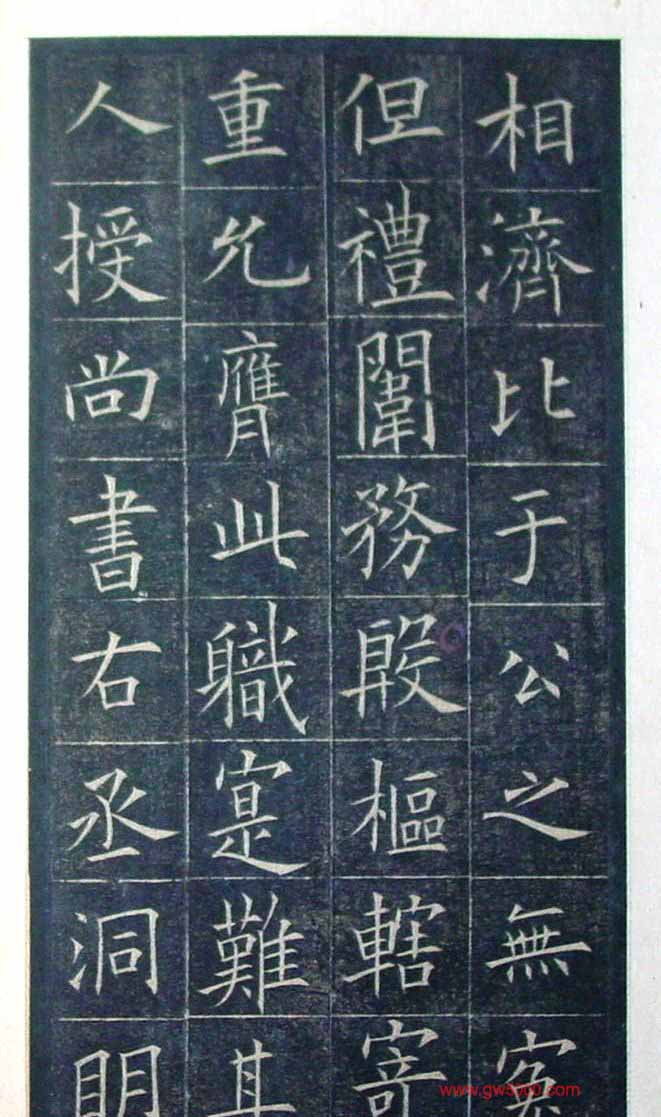 相濟比于公之無寃
但禮闈務殷樞轄寄
重允膺此職寔難其
人授尚書右丞洞明
www.gw5000.com